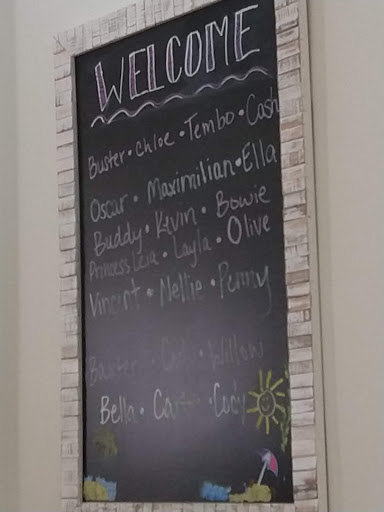 WELCOME
Buster • Chloe • Tembo • Cash
Oscar • Maximilian • Ella
Buddy • Kevin • Bowie
Princess Leia • Layla • Olive
Vincent • Nellie • Penny
Baxter • • Willow
Bella • • Cody